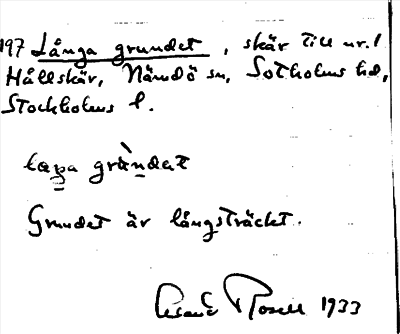 197 Långa grundet, skär till nr. 1
Hållskär, Nämdö sn, Sotholms hd,
Stockholms l.
grùndet
Grundet är långsträckt.
Rosell 1933